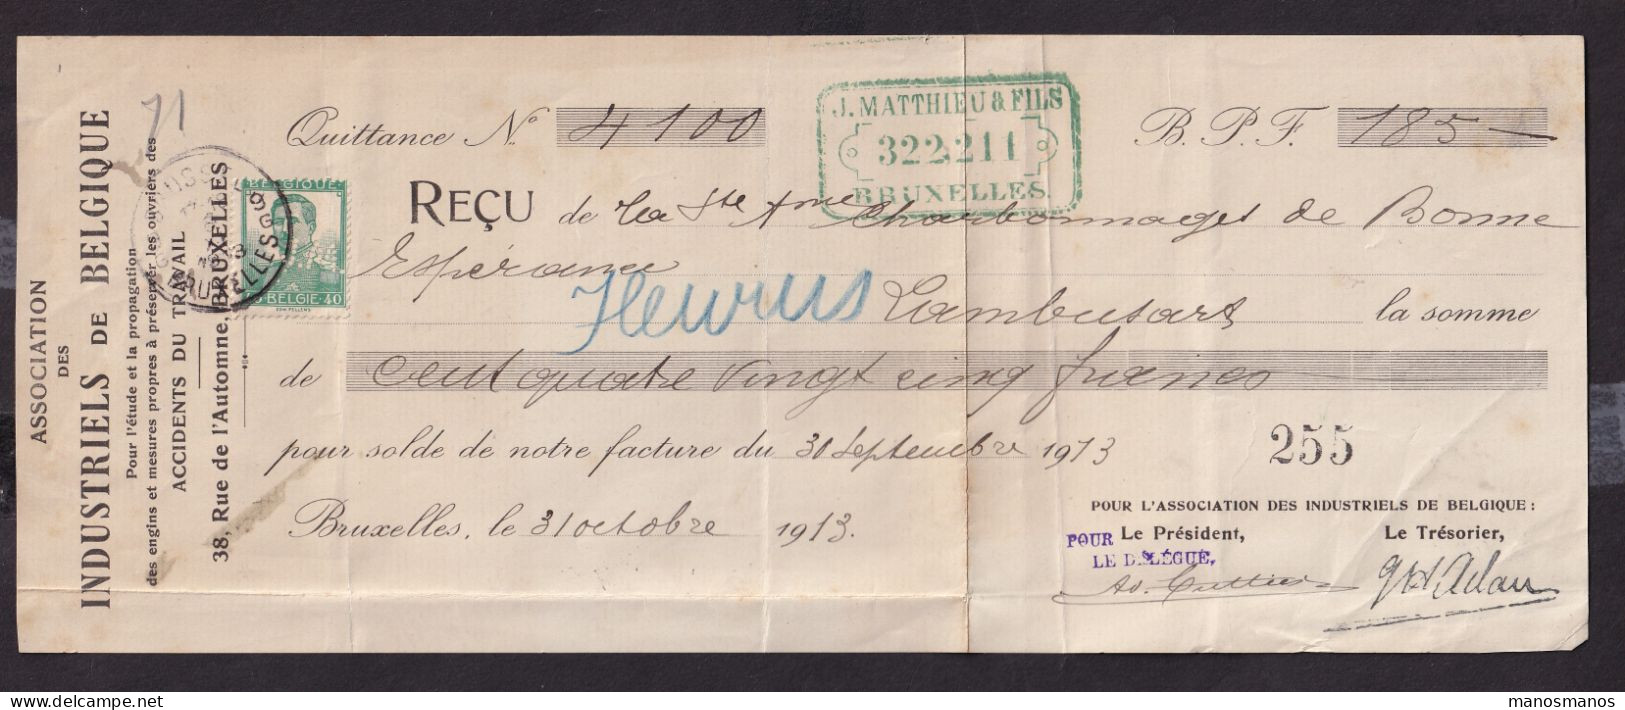 ASSOCIATION
DES
INDUSTRIELS DE BELGIQUE
Pour l'étude et la propagation
des engins et mesures propres à préserver les ouvriers des
ACCIDENTS DU TRAVAIL
38, Rue de l'Automne, BRUXELLES
71
BELGIQUE
BELGIE·40
Quittance No 4100
J. MATTHIEU & FILS
322211
BRUXELLES.
B. P. F. 185 —
REÇU de la Ste Ame Charbonnages de Bonne
Espérance
Fleurus Lambusart la somme
de cent quatre vingt cinq francs
pour solde de notre facture du 30 Septembre 1913
255
Bruxelles, le 31 octobre 1913.
POUR L'ASSOCIATION DES INDUSTRIELS DE BELGIQUE :
POUR Le Président, Le Trésorier,
LE DÉLÉGUÉ,
manosmanos